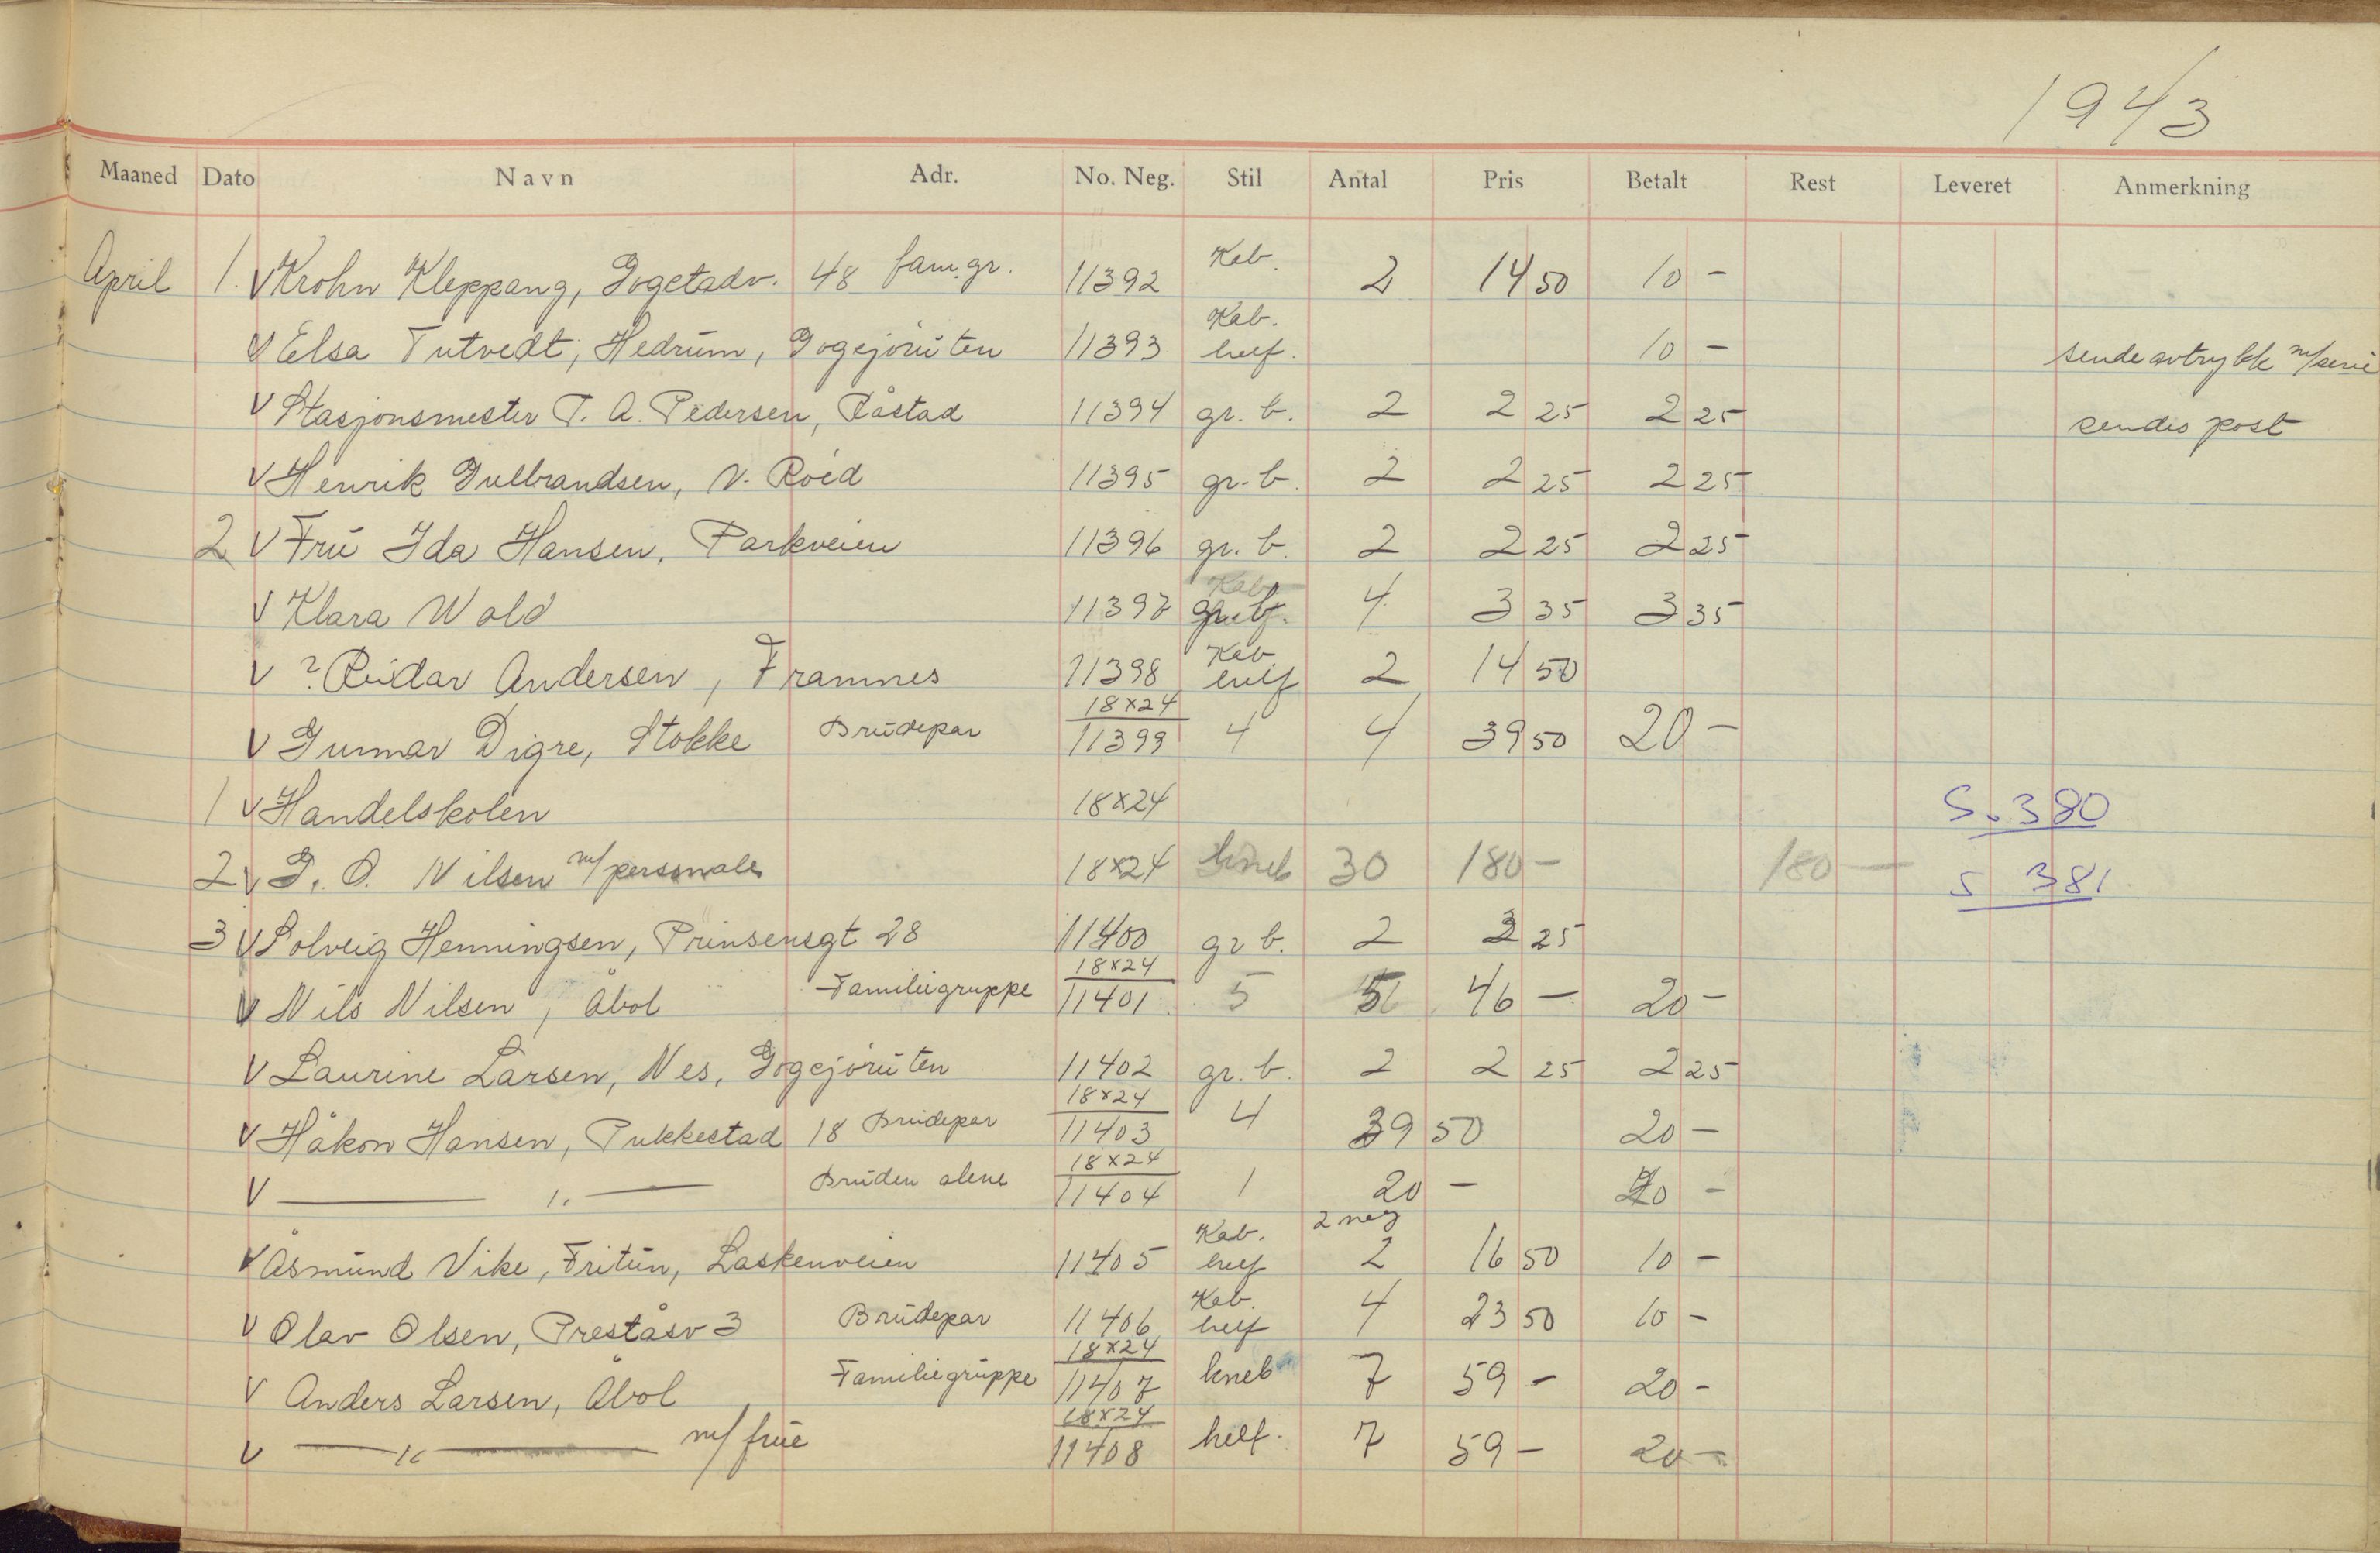 1943
Maaned Dato Navn Adr. No. Neg. Stil Antal Pris Betalt Rest Leveret Anmerkning
April 1. V Krohn Kleppang, Gogetadv. 48 fam.gr. 11392 Kab. 2 14 50 10 -
V Elsa Tutvedt, Hedrum, Gogejöruten 11393 Kab. helf. 10 - sende avtrykk m/serie
V Stasjonsmester T. A. Pedersen, Råstad 11394 gr. b. 2 2 25 2 25 sendes post
V Henrik Gulbrandsen, V. Roéd 11395 gr. b. 2 2 25 2 25
2 V Fru Ida Hansen, Parkveien 11396 gr. b. 2 2 25 2 25
V Klara Wold 11397 Kab gr. b. 4 3 35 3 35
V ? Reidar Andersen, Framnes 11398 Kab helf 2 14 50
V Gunnar Digre, Stokke Brudepar 18x24 11399 4 4 39 50 20 -
1 V Handelskolen 18x24 S. 380
2 V G. O. Nilsen m/personale 18x24 kneb 30 180 - 180 - S 381
3 V Solveig Henningsen, Prinsensgt 28 11400 gr b. 2 2 25
V Nils Nilsen, Åbol Familiegruppe 18x24 11401 5 5 46 - 20 -
V Laurine Larsen, Nes, Gogejöruten 11402 gr. b. 2 2 25 2 25
V Håkon Hansen, Pukkestad 18 Brudepar 18x24 11403 4 39 50 20 -
V — " — Bruden alene 18x24 11404 1 20 - 20 -
V Åsmund Vike, Fritun, Laskenveien 11405 Kab. helf 2 neg 2 16 50 10 -
V Olav Olsen, Preståsv 3 Brudepar 11406 Kab. helf 4 23 50 10 -
V Anders Larsen, Åbol Familiegruppe 18x24 11407 kneb 7 59 - 20 -
V — " — m/ frue 18x24 11408 helf. 7 59 - 20 -